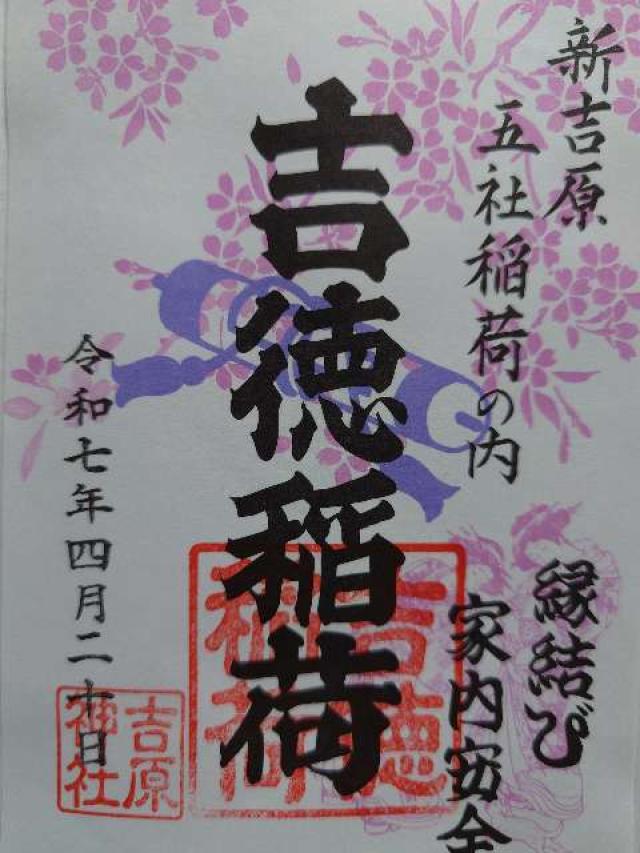 新吉原
五社稲荷の内
縁結び
家内安全
吉徳稲荷
吉徳
稲荷
令和七年四月二十日
吉原
神社